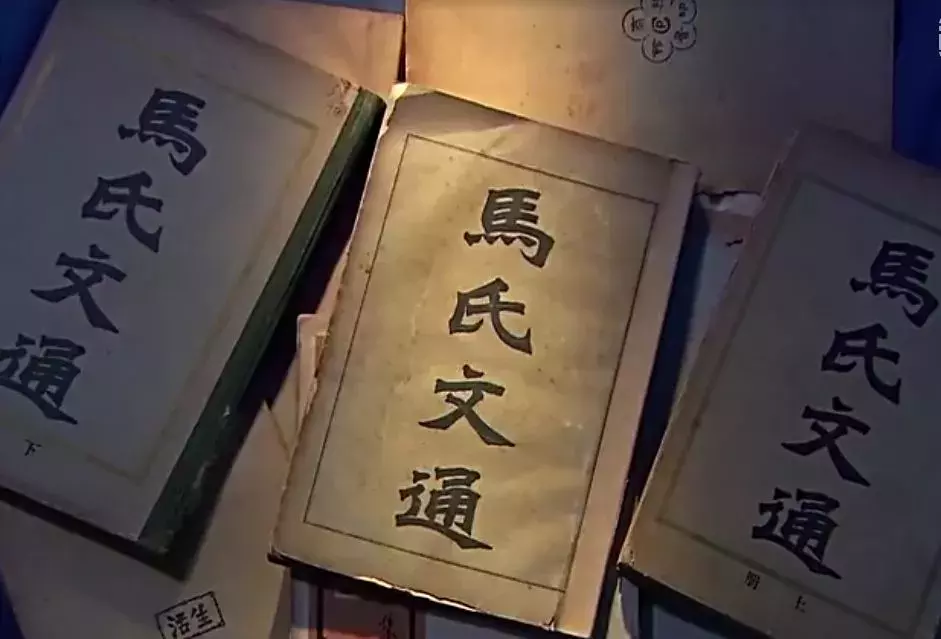 馬氏文通
下
馬氏文通
馬氏文通
上册
生活
集